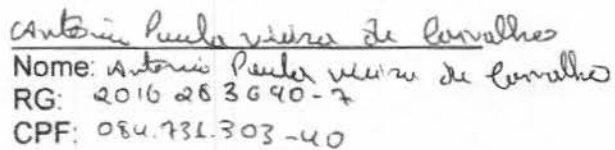 Antonio Paula vieira de Carvalho
Nome: Antonio Paula vieira de Carvalho
RG: 2016 28 3690-7
CPF: 084.731.303-40